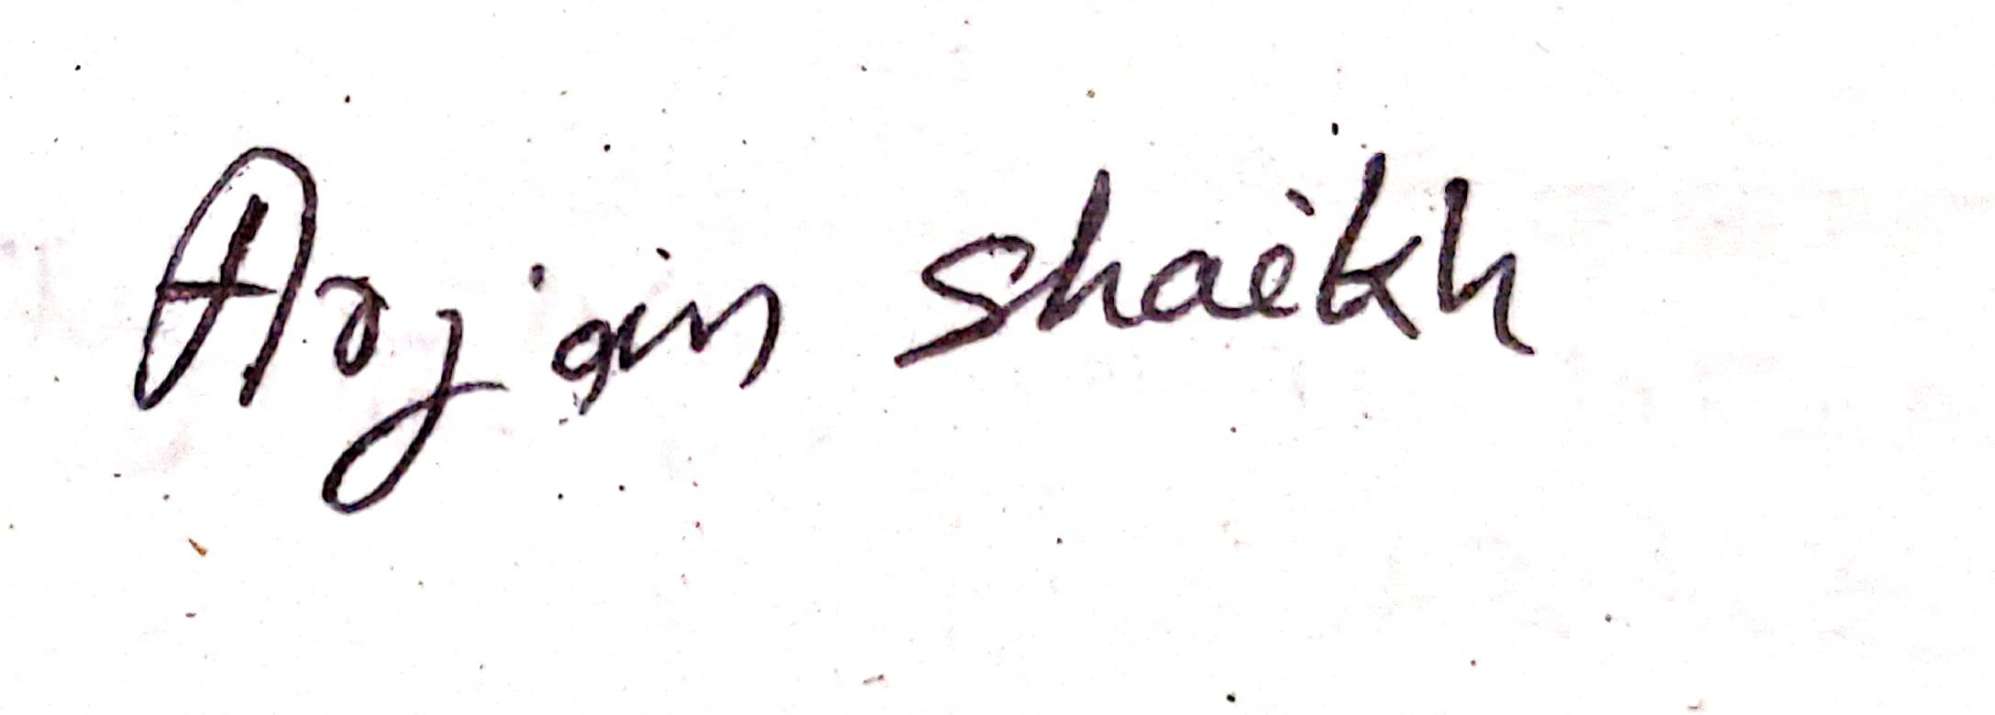 Arjain Shaikh